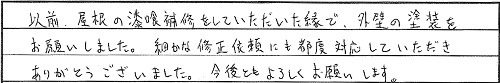 以前、屋根の漆喰補修をしていただいた縁で、外壁の塗装を
お願いしました。細かな修正依頼にも都度対応していただき
ありがとうございました。今後ともよろしくお願いします。